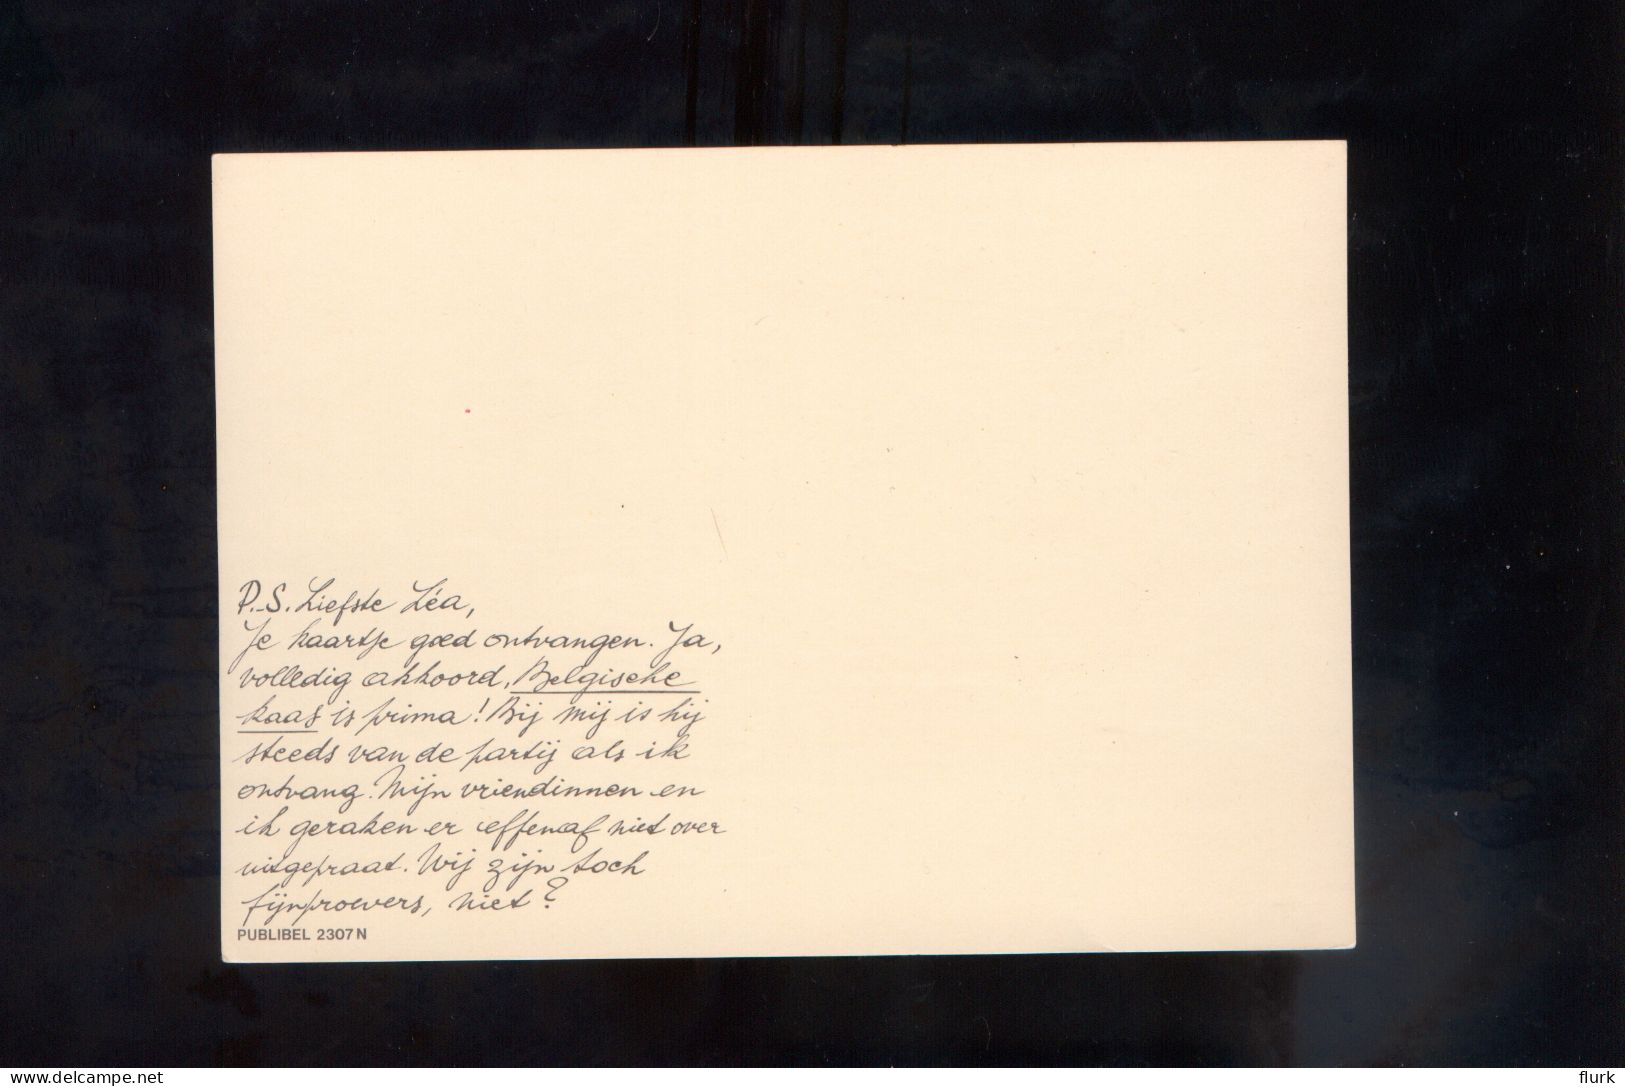 P.-S. Liefste Léa,
Je kaartje goed ontvangen. Ja,
volledig akkoord, Belgische
kaas is prima! Bij mij is hij
steeds van de partij als ik
ontvang. Mijn vriendinnen en
ik geraken er effenaf niet over
uitgepraat. Wij zijn toch
fijnproevers, niet?
PUBLIBEL 2307 N
delcampe.net
flurk